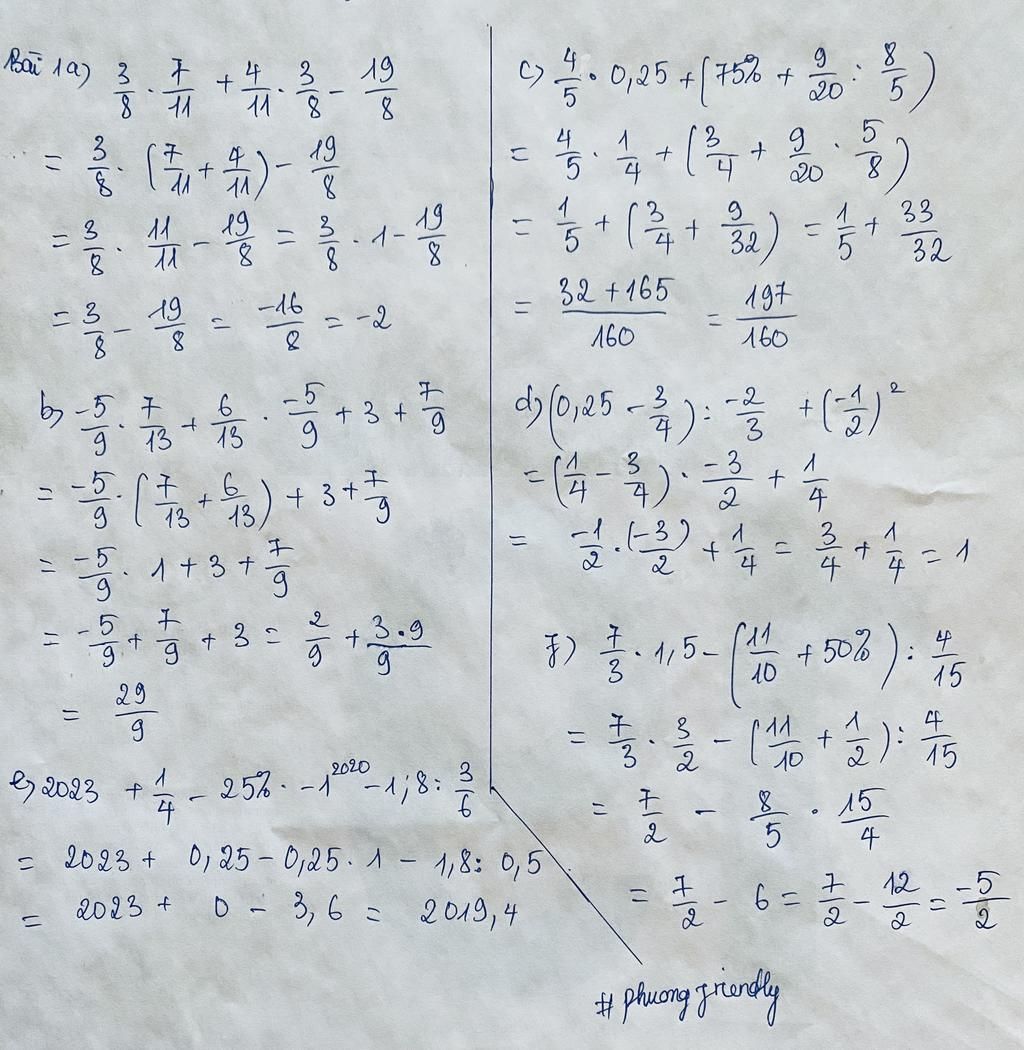 Bài 1a) 3/8 · 7/11 + 4/11 · 3/8 - 19/8
= 3/8 · (7/11 + 4/11) - 19/8
= 3/8 · 11/11 - 19/8 = 3/8 · 1 - 19/8
= 3/8 - 19/8 = -16/8 = -2
b) -5/9 · 7/13 + 6/13 · -5/9 + 3 + 7/9
= -5/9 · (7/13 + 6/13) + 3 + 7/9
= -5/9 · 1 + 3 + 7/9
= -5/9 + 7/9 + 3 = 2/9 + 3·9/9
= 29/9
e) 2023 + 1/4 - 25% · -1^2020 - 1,8 : 3/6
= 2023 + 0,25 - 0,25 · 1 - 1,8 : 0,5
= 2023 + 0 - 3,6 = 2019,4
c) 4/5 · 0,25 + (75% + 9/20 : 8/5)
= 4/5 · 1/4 + (3/4 + 9/20 · 5/8)
= 1/5 + (3/4 + 9/32) = 1/5 + 33/32
= 32 + 165/160 = 197/160
d) (0,25 - 3/4) : -2/3 + (-1/2)²
= (1/4 - 3/4) · -3/2 + 1/4
= -1/2 · (-3)/2 + 1/4 = 3/4 + 1/4 = 1
f) 7/3 · 1,5 - (11/10 + 50%) : 4/15
= 7/3 · 3/2 - (11/10 + 1/2) : 4/15
= 7/2 - 8/5 · 15/4
= 7/2 - 6 = 7/2 - 12/2 = -5/2
# phuong friendly